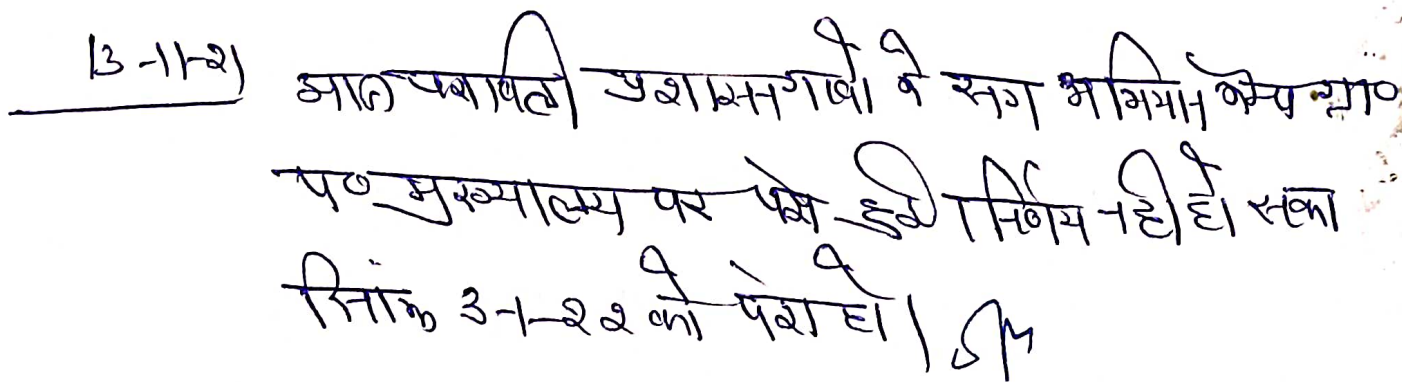 13-11-21 आज पत्रावली प्रशासन गांवो के संग अभियान केम्प ग्रा०
पं० मुख्यालय पर पेश हुई। निर्णय नही हो सका
दिनांक 3-1-22 को पेश हो।